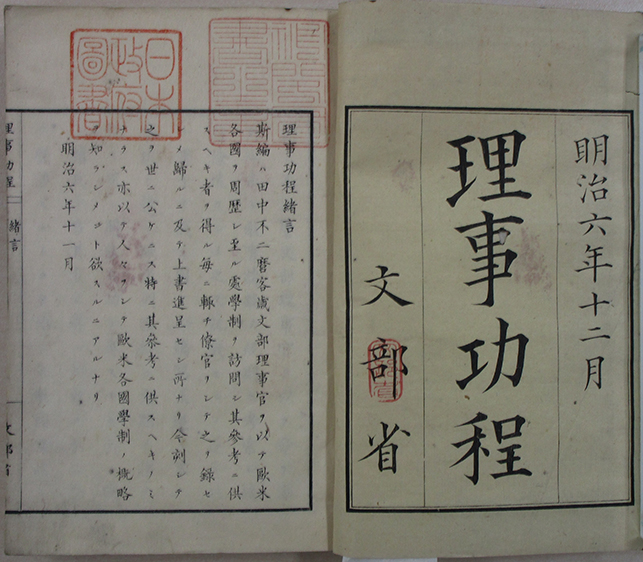 明治六年十二月
理事功程
文部省
日本
政府
圖書
理事功程緒言
斯編ハ田中不二麿客歳文部理事官ヲ以テ歐米
各國ヲ周歴シ至ル處學制ヲ訪問シ其參考ニ供
スヘキ者ヲ得ル毎ニ輙チ僚官ヲシテ之ヲ録セ
シメ歸ルニ及テ上書進呈セシ所ナリ今刻シテ
之ヲ世ニ公ケニス特ニ其參考ニ供スヘキノミ
ナラス亦以テ人々ヲシテ歐米各國學制ノ概略
ヲ知ラシメント欲スルニアルナリ
明治六年十一月
理事功程 緒言 文部省